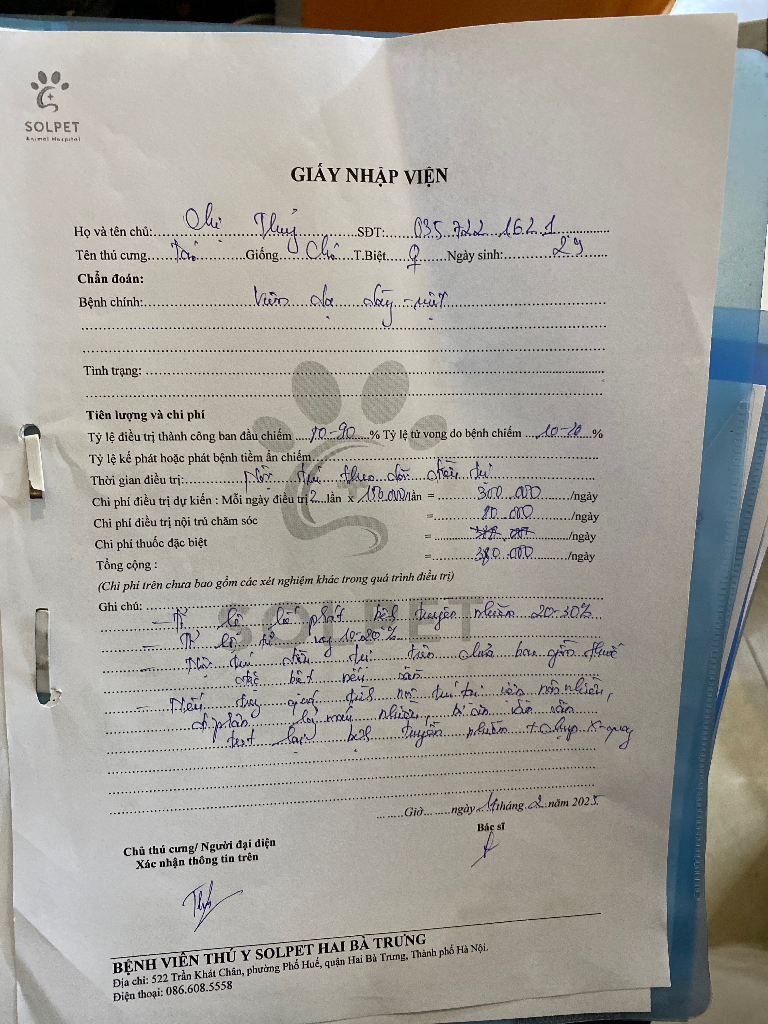 SOLPET
Animal Hospital
GIẤY NHẬP VIỆN
Họ và tên chủ: Chị Thuỷ SĐT: 035.722.1621
Tên thú cưng Giống Chó T.Biệt ♀ Ngày sinh: 29
Chẩn đoán:
Bệnh chính: Viêm dạ dày - ruột
Tình trạng:
Tiên lượng và chi phí
Tỷ lệ điều trị thành công ban đầu chiếm % Tỷ lệ tử vong do bệnh chiếm 10-20 %
Tỷ lệ kế phát hoặc phát bệnh tiềm ẩn chiếm
Thời gian điều trị: Nội trú theo dõi điều trị
Chi phí điều trị dự kiến : Mỗi ngày điều trị 2 lần x 150.000/lần = 300.000 /ngày
Chi phí điều trị nội trú chăm sóc = 80.000 /ngày
Chi phí thuốc đặc biệt = /ngày
Tổng cộng : = 380.000 /ngày
(Chi phí trên chưa bao gồm các xét nghiệm khác trong quá trình điều trị)
Ghi chú:
- Tỉ lệ kế phát bệnh truyền nhiễm 20-30%
- Tỉ lệ tử vong 10-20%
- Nội trú điều trị trên chưa bao gồm thuốc
đặc biệt nếu cần
- Nếu trong quá trình nội trú còn nôn nhiều,
đi phân máu nhiều, cần
test lại bệnh truyền nhiễm + chụp X-quang
SOLPET
Giờ ngày 11 tháng 2 năm 2025
Chủ thú cưng/ Người đại diện
Xác nhận thông tin trên
Bác sĩ
BỆNH VIỆN THÚ Y SOLPET HAI BÀ TRƯNG
Địa chỉ: 522 Trần Khát Chân, phường Phố Huế, quận Hai Bà Trưng, Thành phố Hà Nội.
Điện thoại: 086.608.5558